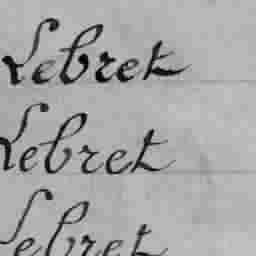 Lebret
Lebret
Lebret